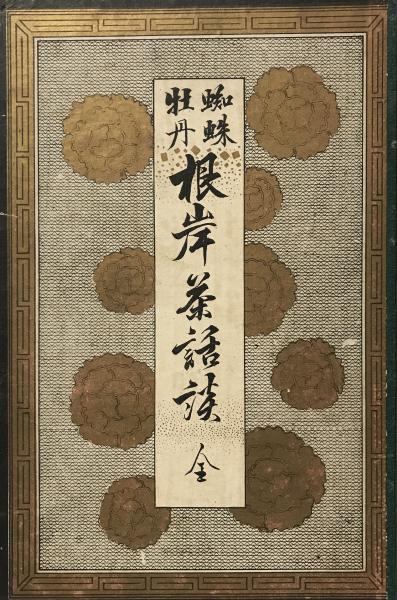 蜘蛛
牡丹
根岸茶話談
全